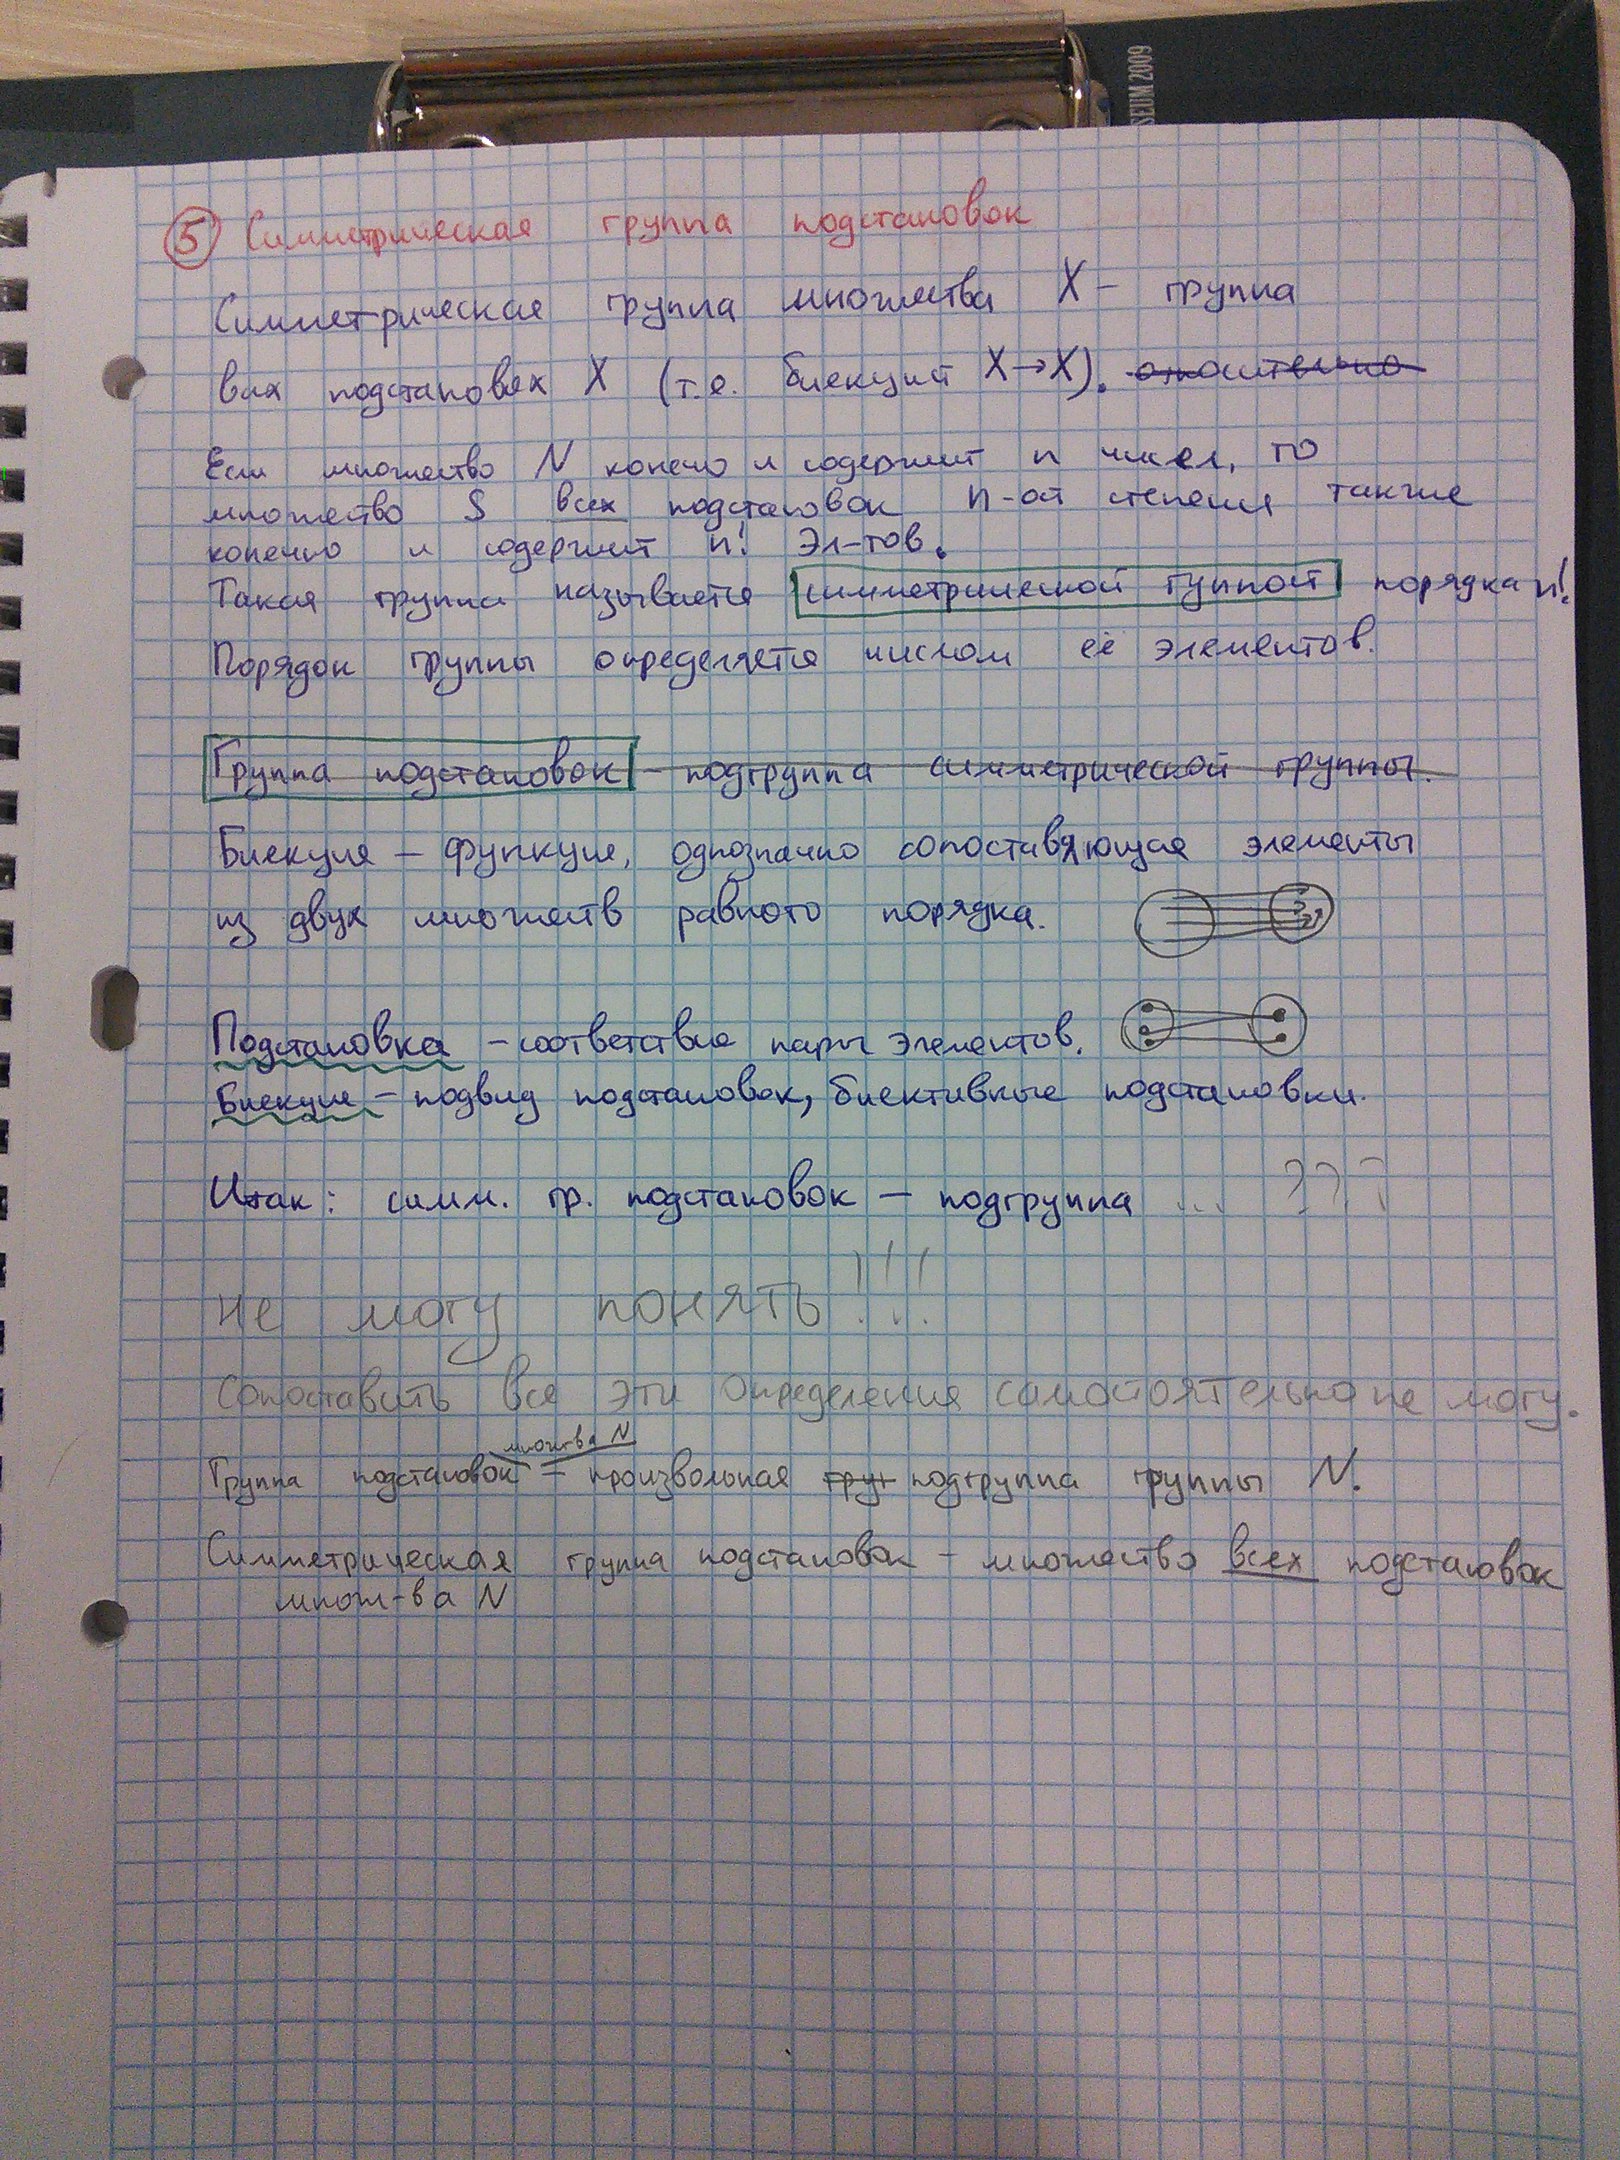 SEUM 2009
5 Симметрическая группа подстановок
Симметрическая группа множества X – группа
всех подстановок X (т.е. биекций X→X). относительно
Если множество N конечно и содержит n чисел, то
множество S всех подстановок n-ой степени также
конечно и содержит n! эл-тов.
Такая группа называется симметрической группой порядка n!
Порядок группы определяется числом её элементов.
Группа подстановок – подгруппа симметрической группы.
Биекция – функция, однозначно сопоставляющая элементы
из двух множеств равного порядка.
Подстановка – соответствие пары элементов.
Биекция – подвид подстановок, биективные подстановки.
Итак: симм. гр. подстановок – подгруппа ... ???
Не могу понять!!!
Сопоставить все эти определения самостоятельно не могу.
множ-ва N
Группа подстановок – произвольная груп подгруппа группы N.
Симметрическая группа подстановок – множество всех подстановок
множ-ва N